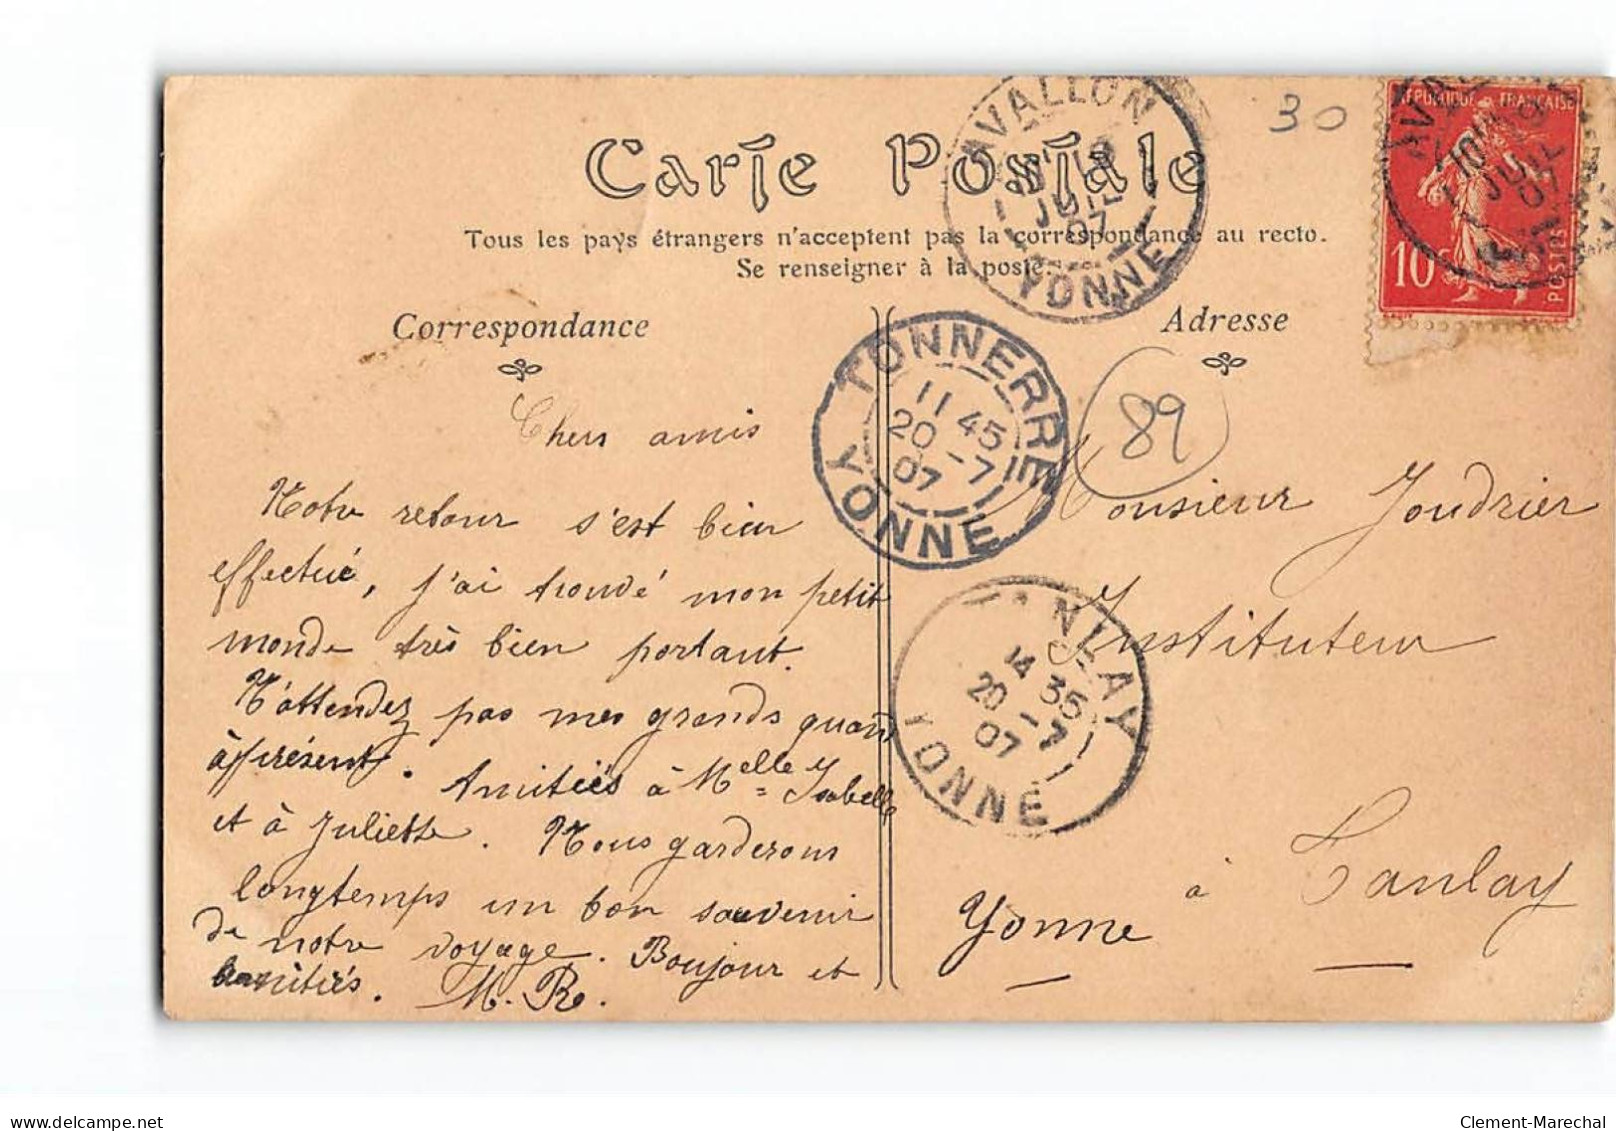 30
AVALLON
JUIL
07
YONNE
RÉPUBLIQUE FRANÇAISE
10c
POSTES
Carte Postale
Tous les pays étrangers n'acceptent pas la correspondance au recto.
Se renseigner à la poste.
Correspondance
Adresse
TONNERRE
11 45
20 -7
07
YONNE
89
Chers amis
Notre retour s'est bien
effectué, j'ai trouvé mon petit
monde très bien portant.
N'attendez pas mes grands quand
àprésent. Amitiés à Melle Isabelle
et à Juliette. Nous garderons
longtemps un bon souvenir
de notre voyage. Boujour et
amitiés. M. R.
Monsieur Joudrier
Instituteur
à Tanlay
Yonne
TANLAY
14 35
20 -7
07
YONNE
Clement-Marechal